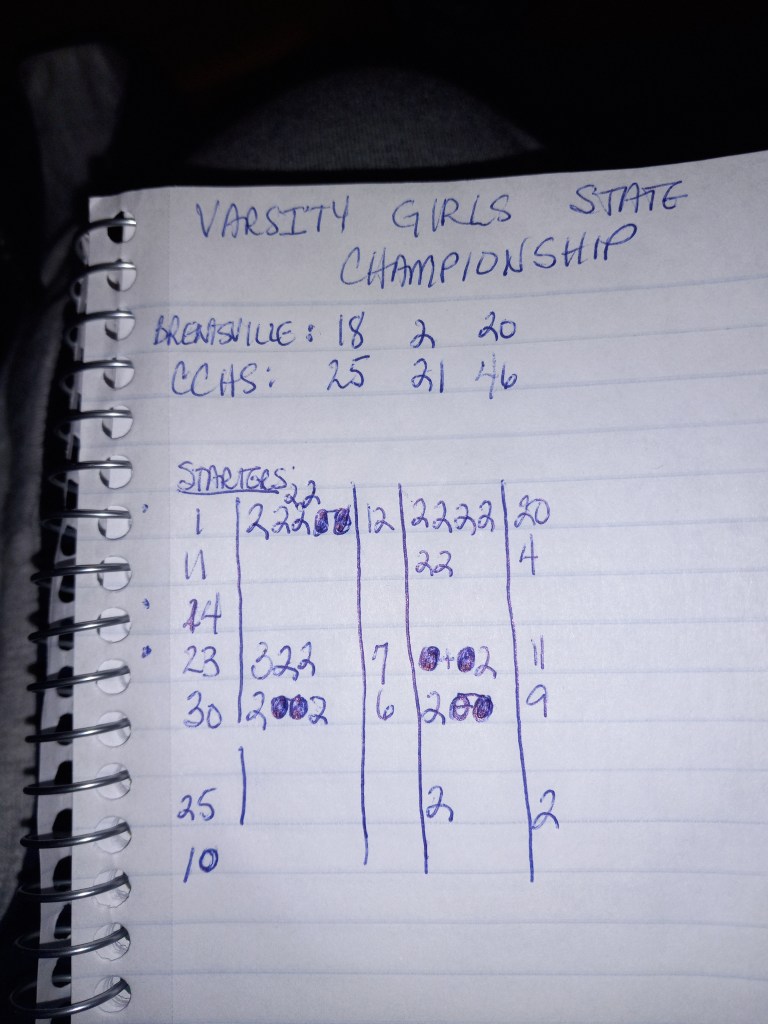 VARSITY GIRLS STATE
CHAMPIONSHIP
BRENTSVILLE: 18 2 20
CCHS: 25 21 46
STARTERS:
22
1 222 12 2222 20
11 22 4
14
23 322 7 + 2 11
30 2 2 6 2 9
25 2 2
10